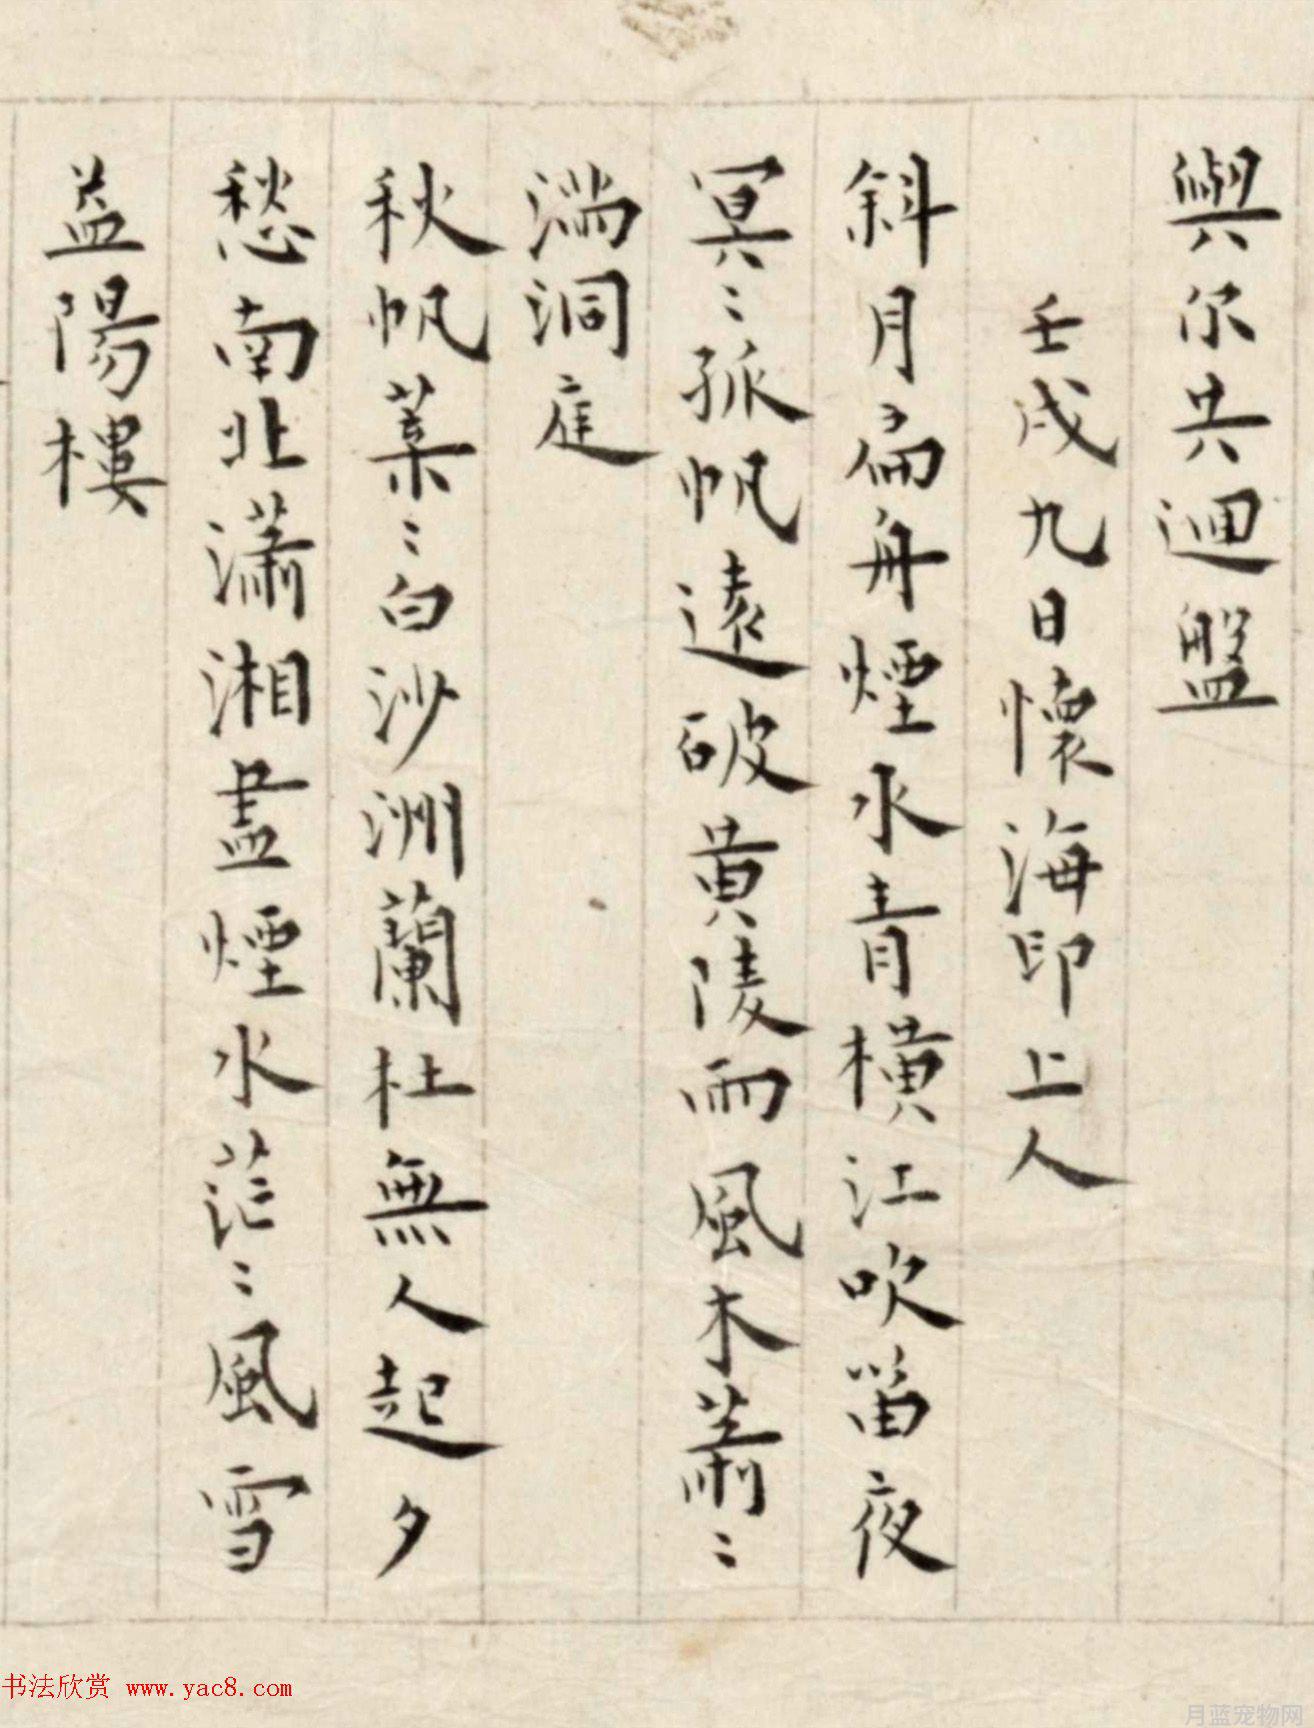 與尔共迴盤
壬戌九日懷海印上人
斜月扁舟煙水青橫江吹笛夜
冥〻孤帆遠破黃陵雨風木蕭〻
滿洞庭
秋帆葉〻白沙洲蘭杜無人起夕
愁南北瀟湘盡煙水茫〻風雪
益陽樓
书法欣赏 www.yac8.com
月蓝宠物网